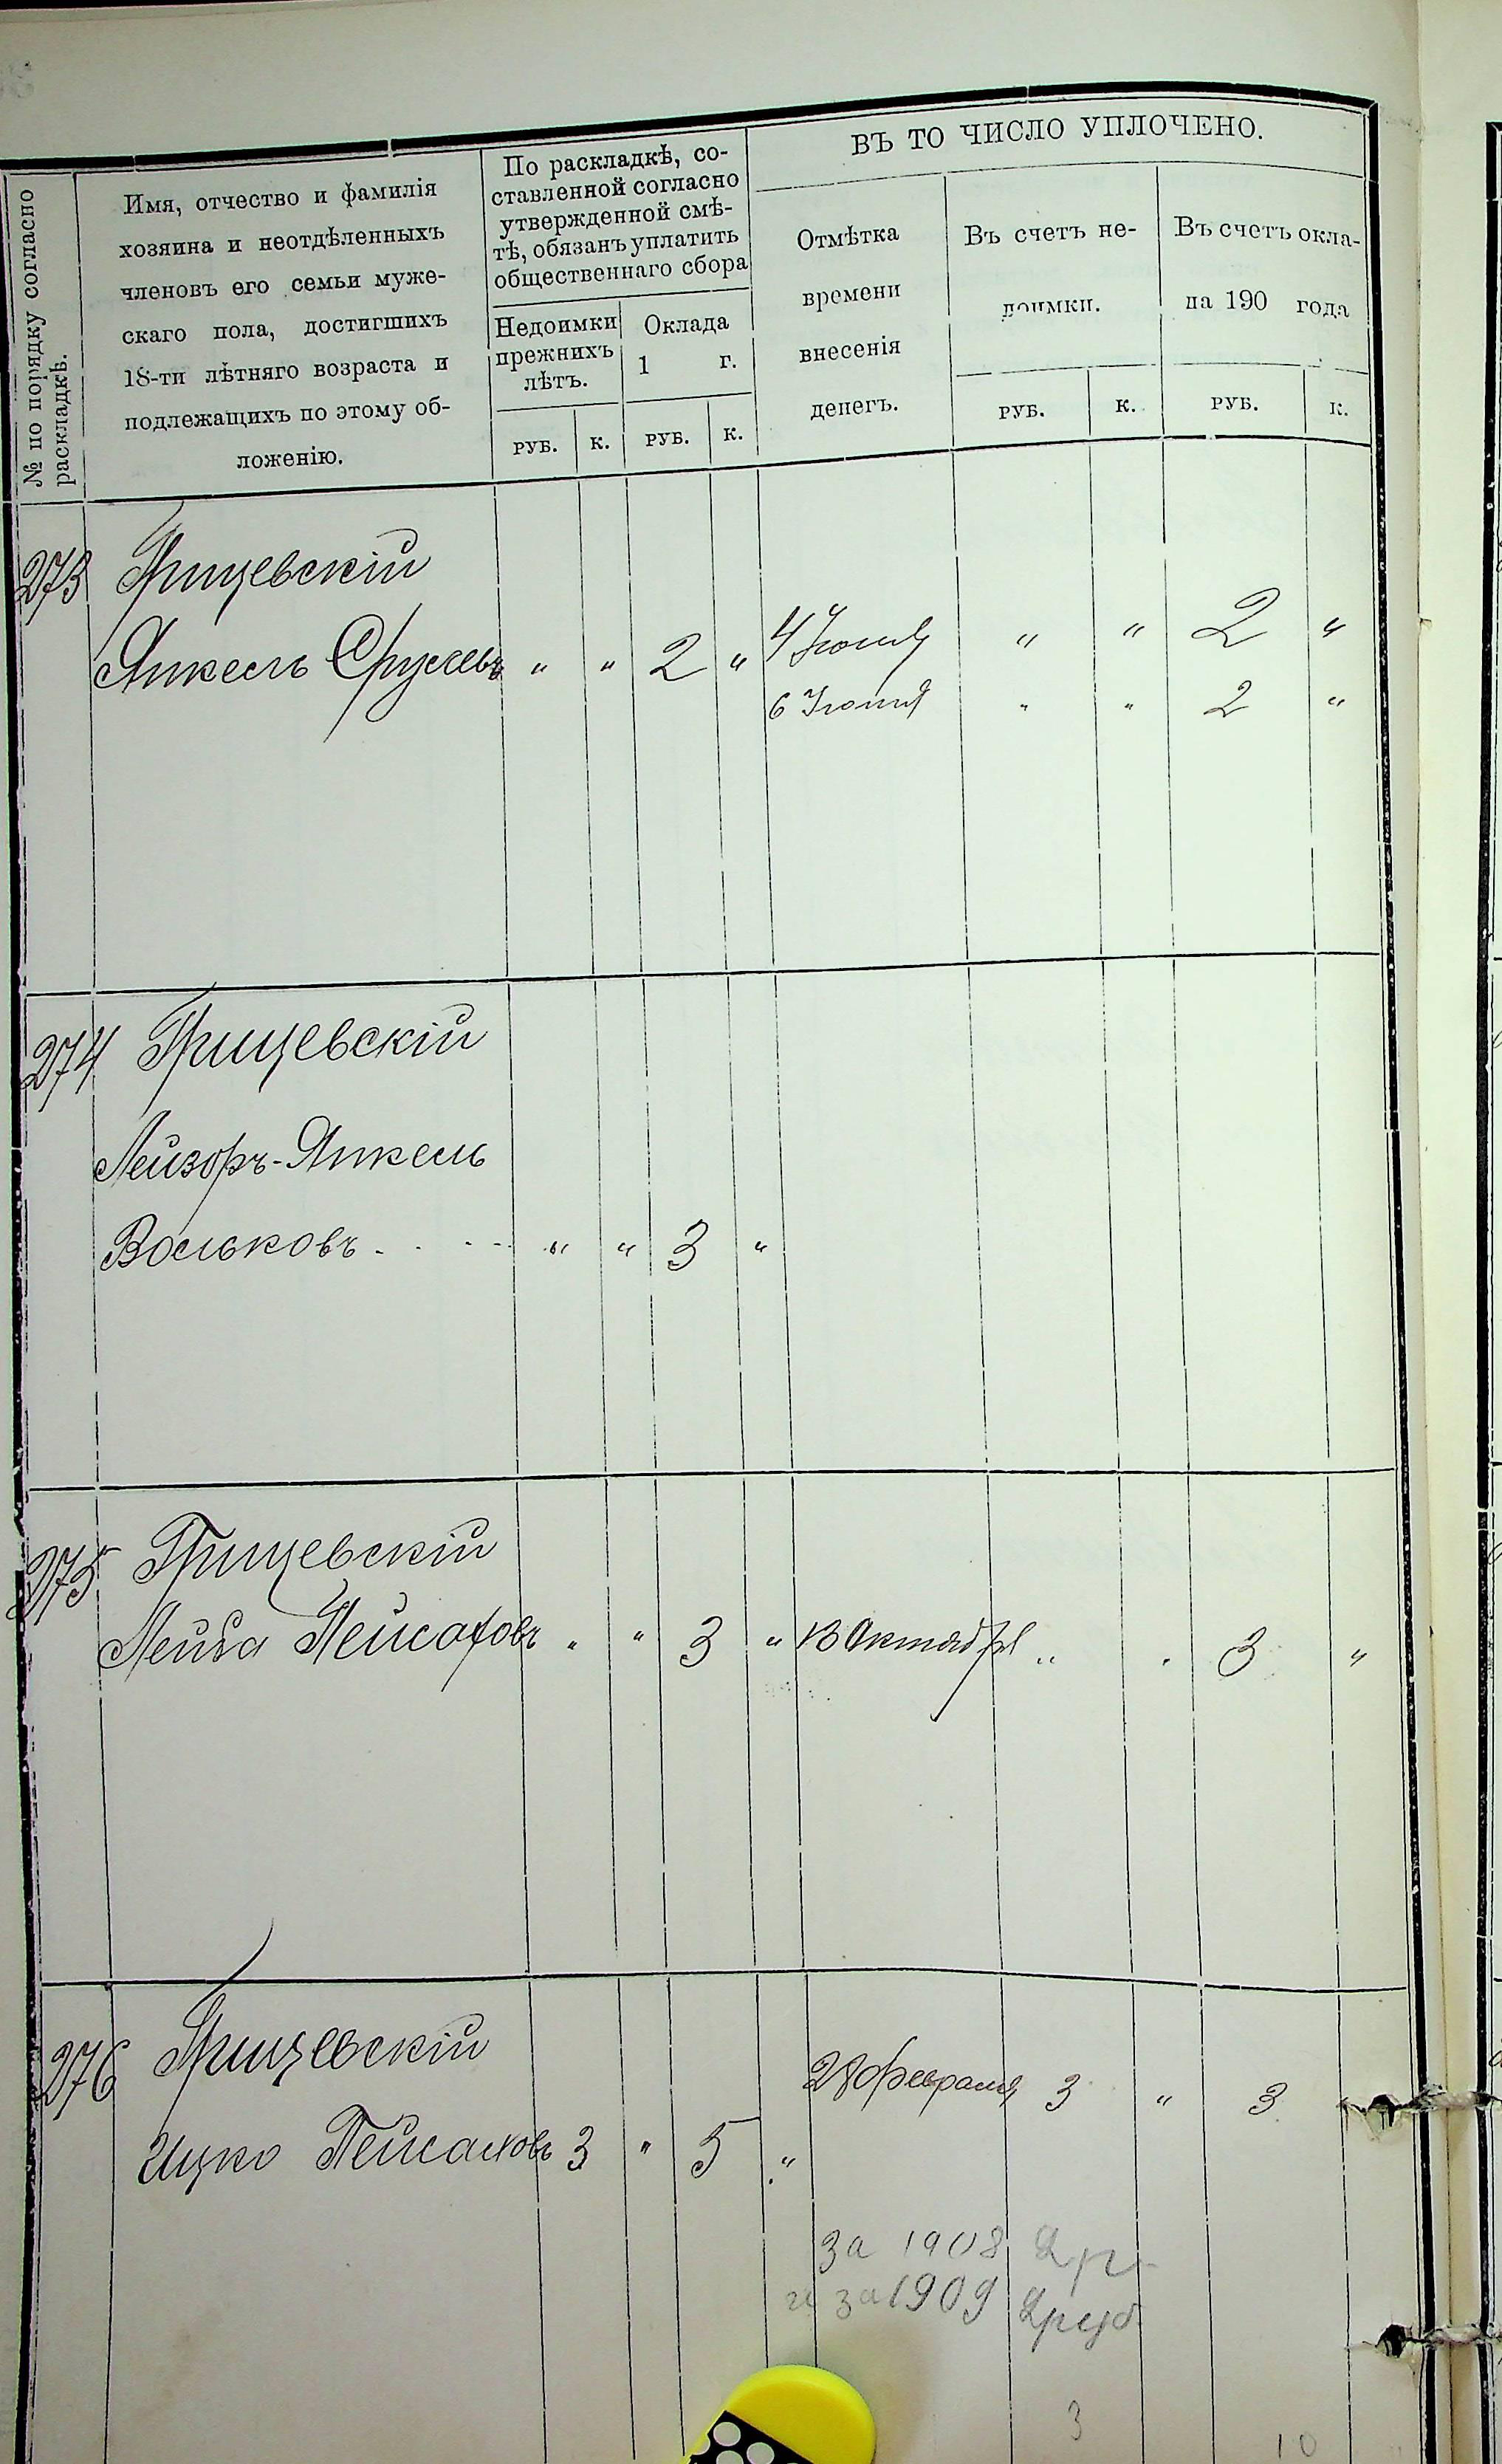 ВЪ ТО ЧИСЛО УПЛОЧЕНО.
№ по порядку согласно
раскладкѣ.
Имя, отчество и фамилія
хозяина и неотдѣленныхъ
членовъ его семьи муже-
скаго пола, достигшихъ
18-ти лѣтняго возраста и
подлежащихъ по этому об-
ложенію.
По раскладкѣ, со-
ставленной согласно
утвержденной смѣ-
тѣ, обязанъ уплатить
общественнаго сбора
Недоимки
прежнихъ
лѣтъ.
Оклада
1 г.
РУБ. К. РУБ. К.
Отмѣтка
времени
внесенія
денегъ.
Въ счетъ не-
доимки.
РУБ. К.
Въ счетъ окла-
да 190 года
РУБ. К.
273 Грищевскій
Янкель Сруловъ " " 2 " 4 Іюня " " 2 "
6 Іюня " " 2 "
274 Грищевскій
Лейзоръ-Янкель
Вольковъ " " 3 "
275 Грищевскій
Лейба Пейсаховъ " " 3 " 13 Октября " " 3 "
276 Грищевскій
28 Февраля 3 " 3
Ицко Пейсаховъ 3 " 5 "
за 1908 2 р
и за 1909 2 руб
3
10